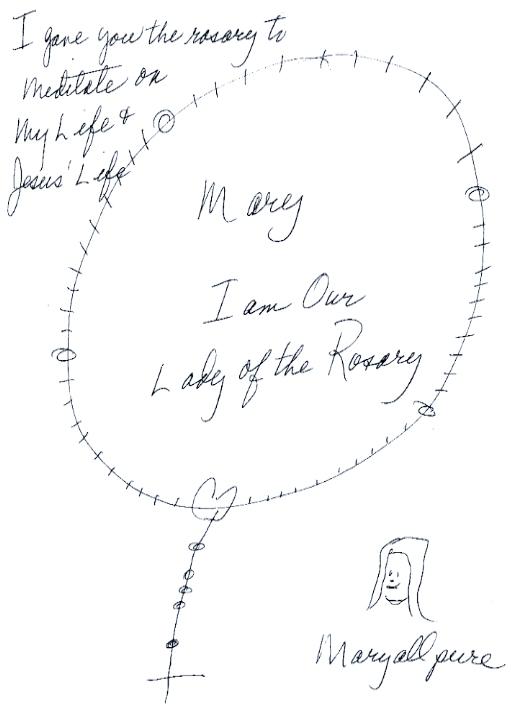 I gave you the rosary to
meditate on
My Life &
Jesus' Life
Mary
I am Our
Lady of the Rosary
Mary all pure